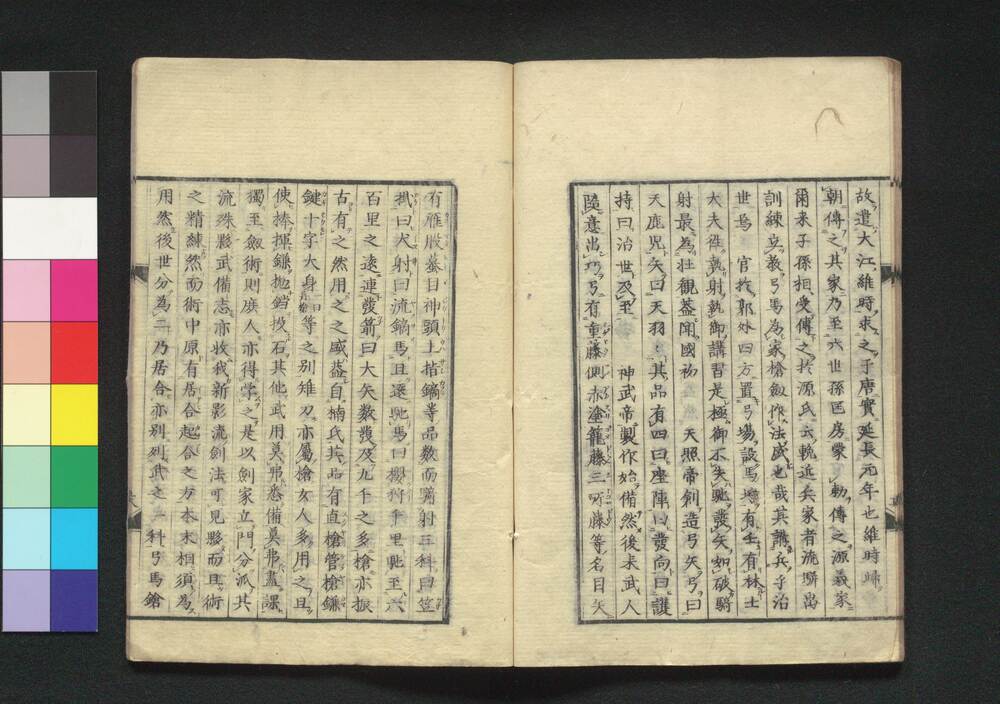 故遣大江維時求之于唐實延長元年也維時帰
朝傳之其家乃至六世孫匡房蒙勅傳之源義家
爾来子孫相受傳之於源氏云輓近兵家者流騈出
訓練立教弓馬為家槍劔作法盛也哉其講兵乎治
世焉官於郭外四方置弓場設馬場有士有林士
大夫徃敦射執御講習是極御不失馳發矢如破騎
射最為壮觀蓋聞國初天照帝創造弓矢弓曰
天鹿児矢曰天羽々其品有四曰座陣曰發向曰護
持曰治世及至神武帝製作始備然後未武人
隨意出巧弓有重藤側赤塗籠藤三所藤等名目矢
有雁股蟇目神頭上指鏑等品數而騎射三科曰笠
掛曰犬射曰流鏑馬且遠馳馬曰櫻狩千里馳至六
百里之遠連發箭曰大矢數發及九千之多槍亦振
古有之然用之之盛蓋自楠氏其品有直槍管槍鎌
鍵十字大身等之別雉刀亦屬槍女人多用之且
使棒揮鎌抛鎖投石其他武用莫弗悉備莫弗盡課
獨至劔術則庶人亦得学之是以劍家立門分派其
流殊夥武備志亦收我新影流劍法可見夥而且術
之精練然而術中原有居合起合之方本末相須為
用然後世分為二乃居合亦別列武之一科弓馬鎗